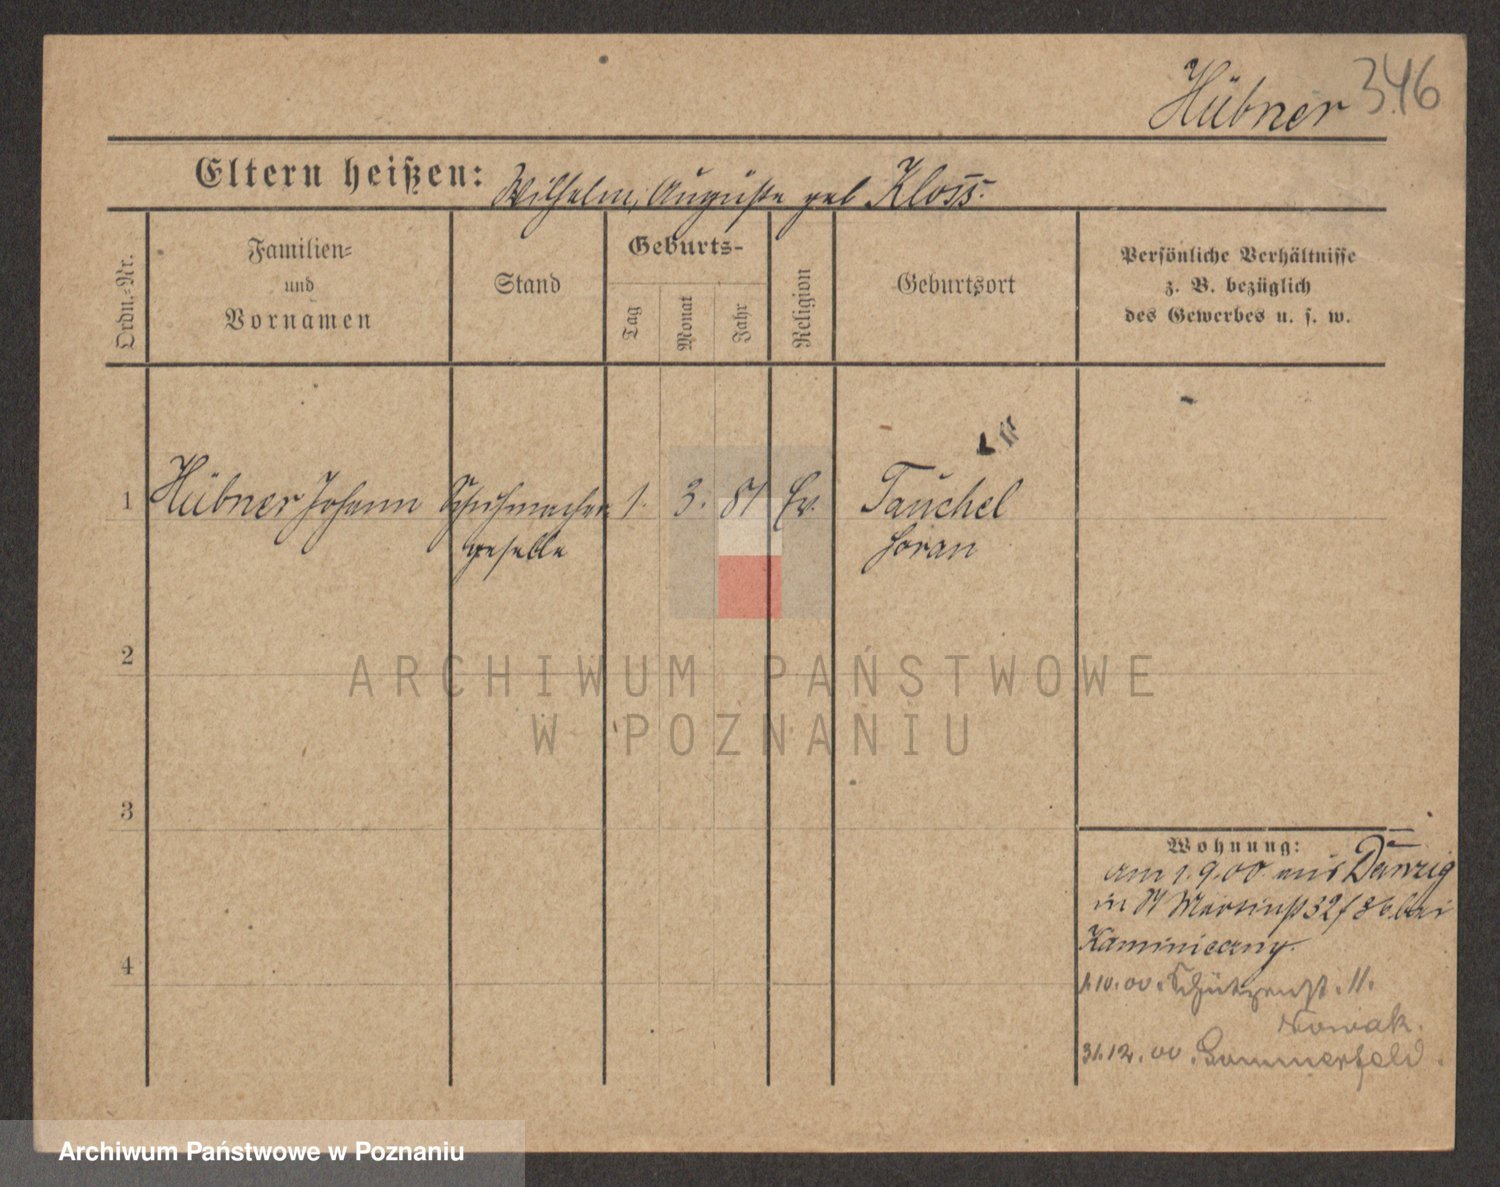 Hübner 346
Eltern heißen: Wilhelm, Auguste geb Kloss.
Ordn.-Nr.
Familien=
und
Vornamen
Stand
Geburts-
Tag
Monat
Jahr
Religion
Geburtsort
Persönliche Verhältnisse
z. B. bezüglich
des Gewerbes u. s. w.
1 Hübner Johann Schuhmacher 1. 3. 81 Ev. Tauchel
geselle Soran
2
3
4
Wohnung:
am 1.9.00 aus Danzig
in St Martinst 32/36 bei
Kaminieczny.
1.10.00. Schützenst. 11.
Nowak.
31.12.00. Sommerfeld.
ARCHIWUM PAŃSTWOWE
W POZNANIU
Archiwum Państwowe w Poznaniu